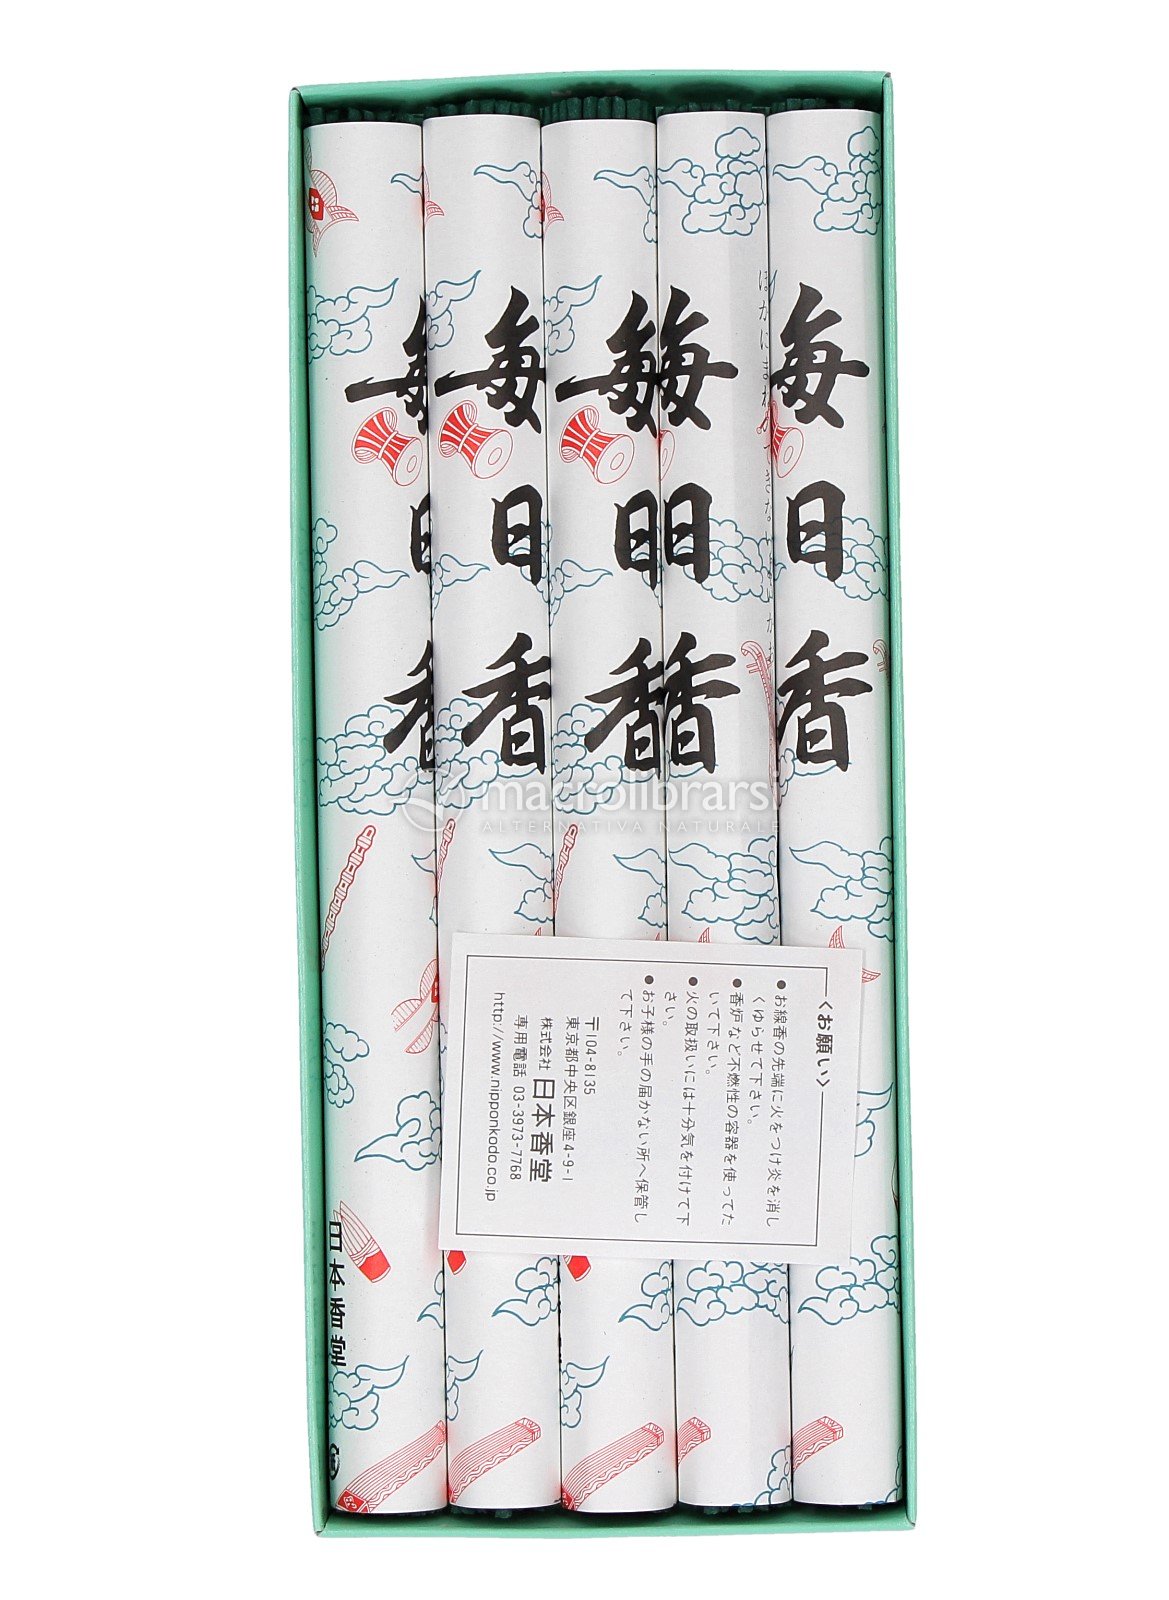 毎日香
毎日香
毎日香
毎日香
毎日香
日本香堂
macrolibrarsi
ALTERNATIVA NATURALE
〈お願い〉
●お線香の先端に火をつけ炎を消し
くゆらせて下さい。
●香炉など不燃性の容器を使ってた
いて下さい。
●火の取扱いには十分気を付けて下
さい。
●お子様の手の届かない所へ保管し
て下さい。
〒104-8135
東京都中央区銀座4-9-1
株式会社 日本香堂
専用電話 03-3973-7768
http://www.nipponkodo.co.jp